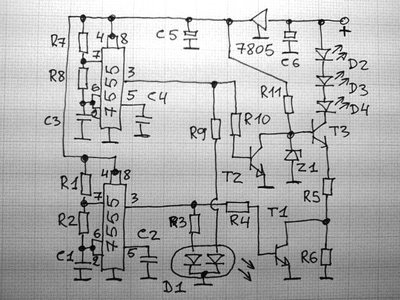 R7 4 8 C5 7805 C6 +
7 D2
R8 7555 3 R11 D3
6 5 D4
2 C4 R10
C3 R9 T3
T2 Z1
R1 4 8 R5
7 3 R3 R4 T1
R2 7555
6 5 C2
C1 2 R6
D1